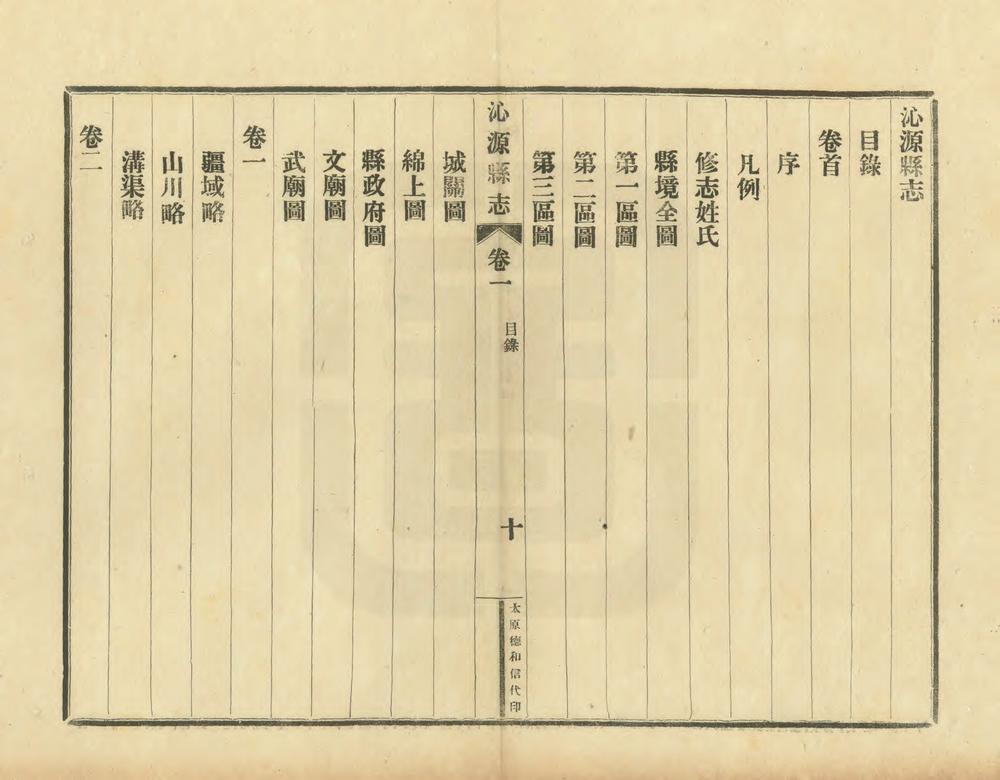 沁源縣志
目錄
卷首
序
凡例
修志姓氏
縣境全圖
第一區圖
第二區圖
第三區圖
沁源縣志 卷一 目錄 十 太原德和信代印
城關圖
綿上圖
縣政府圖
文廟圖
武廟圖
卷一
疆域略
山川略
溝渠略
卷二